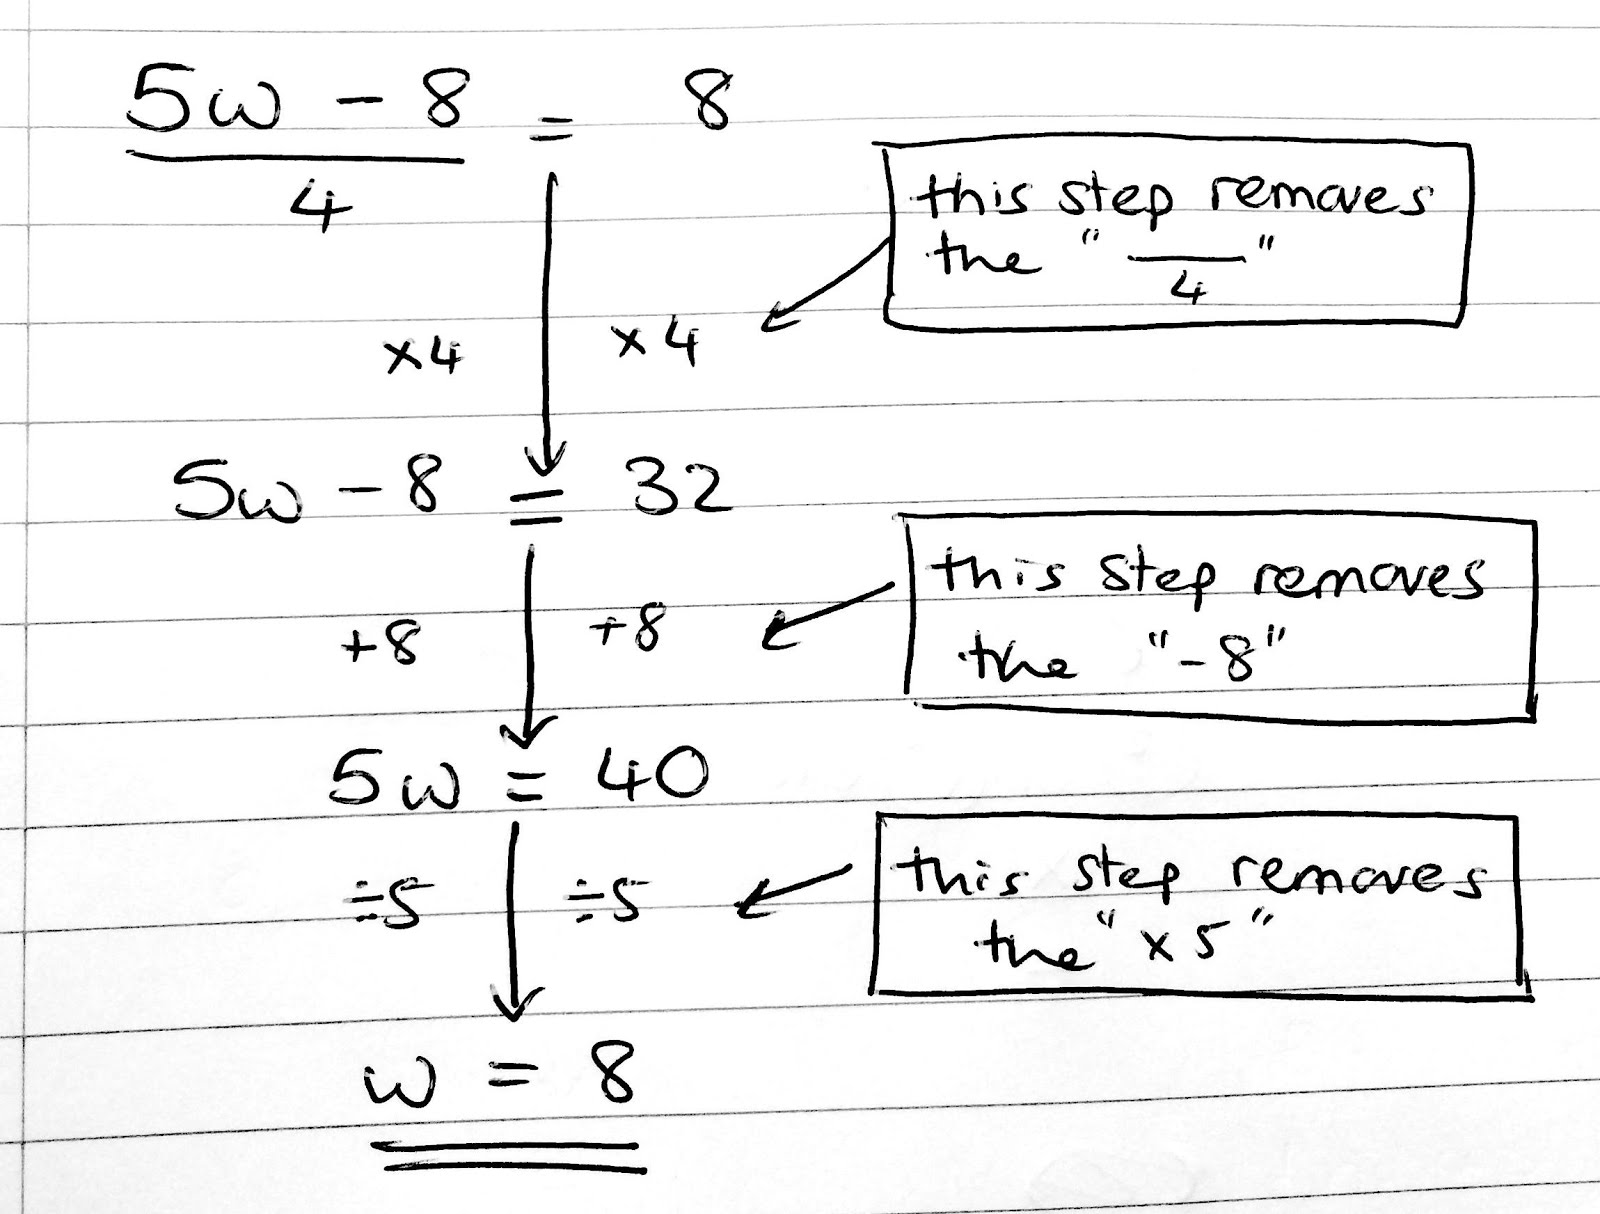 5w - 8 = 8
4
this step removes
the " — "
4
×4 ×4
5w - 8 = 32
this step removes
the "-8"
+8 +8
5w = 40
this step removes
the "×5"
÷5 ÷5
w = 8